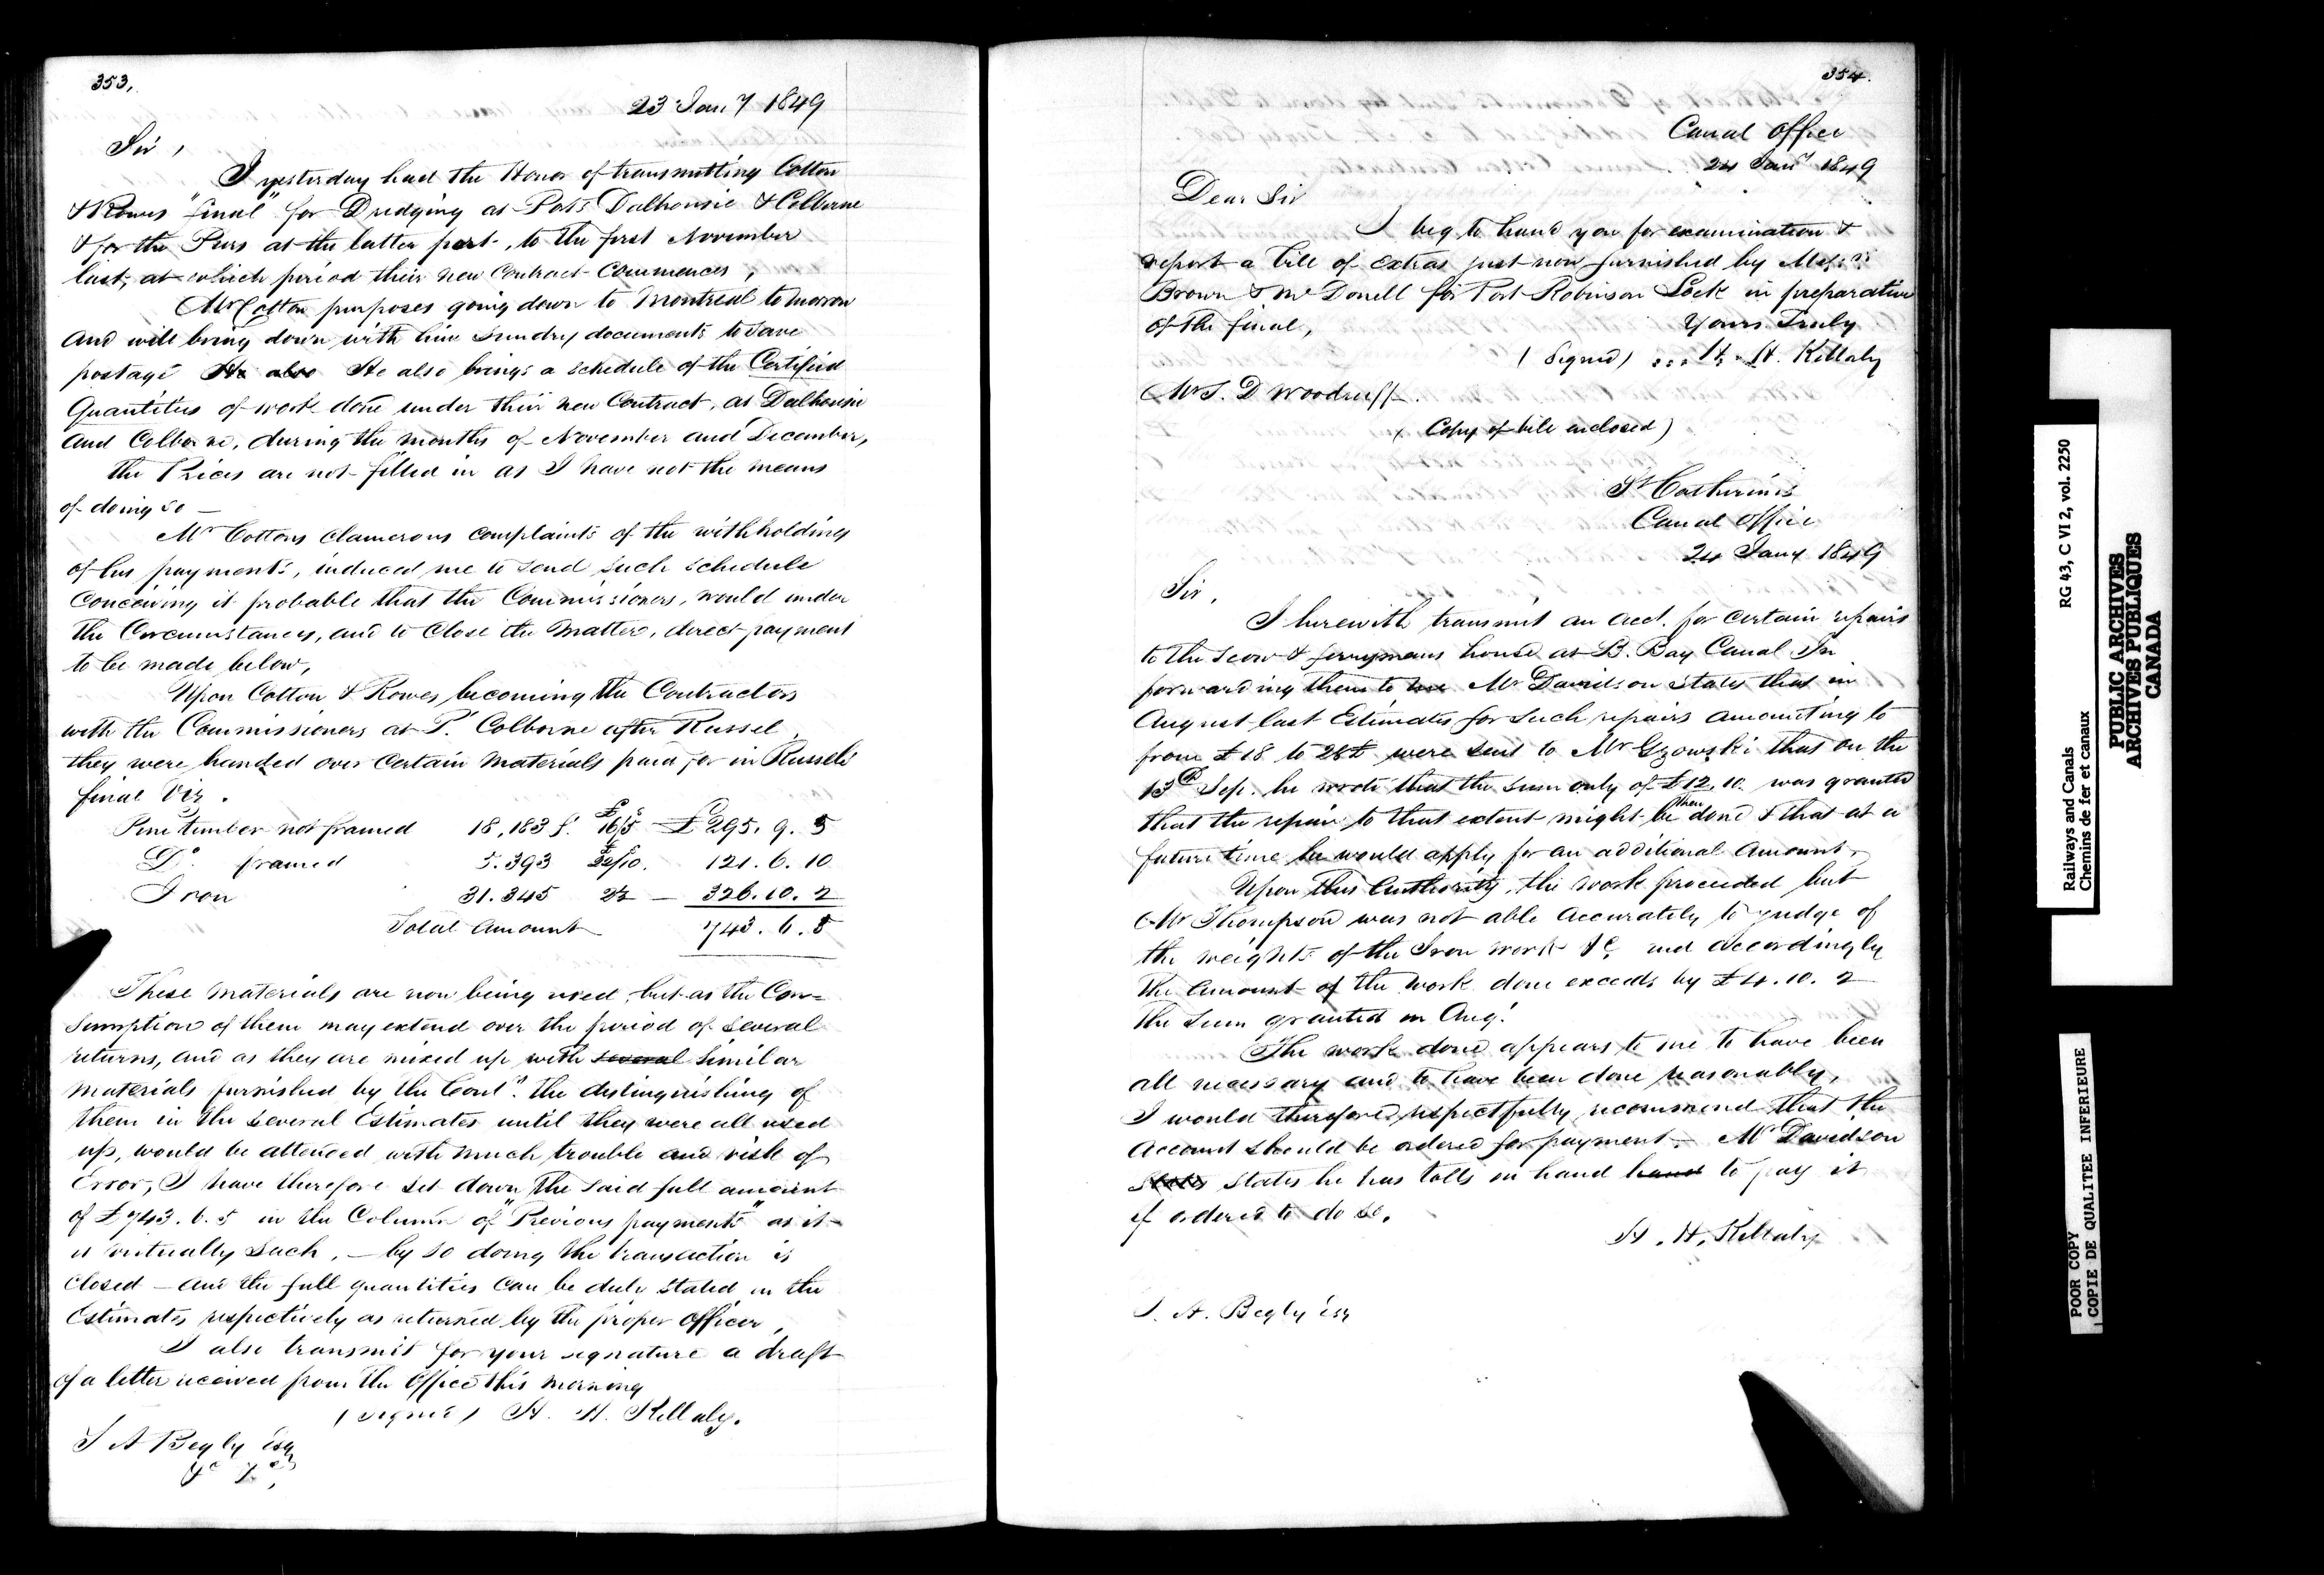 353,
23 Jany 1849
Sir,
I yesterday had the Honor of transmitting Cotton
& Rowes "final" for Dredging at Ports Dalhousie & Colborne
& for the Piers at the latter port, to the first November
last, at which period their new Contract Commences,
Mr Cotton purposes going down to Montreal tomorrow
and will bring down with him sundry documents to save
postage He also He also brings a schedule of the Certified
Quantities of work done under their new Contract, at Dalhousie
and Colborne, during the months of November and December,
the Prices are not filled in as I have not the means
of doing so —
Mr Cottons clamerous complaints of the withholding
of his payments, induced me to send such schedule
Conceiving it probable that the Commissioners, would under
the Circumstances, and to Close the Matter, direct payment
to be made below,
Upon Cotton & Rowes becoming the Contractors
with the Commissioners at Pt Colborne after Russel,
they were handed over Certain Materials paid for in Russels
final Viz.
Pine timber not framed 18,183 f. 16/5 £295. 9. 5
Do framed 5.393 121. 6. 10
Iron 31.345 2½ — 326.10. 2
Total Amount 743. 6. 5
These materials are now being used, but as the Con=
sumption of them may extend over the period of several
returns, and as they are mixed up with several similar
materials furnished by the Contrs. the distinguishing of
them in the several Estimates until they were all used
up, would be attended with much trouble and risk of
Error, I have therefore set down the said full amount
of £743. 6. 5 in the Column of "Previous payments" as it
is virtually such, — by so doing the transaction is
Closed — and the full quantities can be duly stated in the
Estimates respectively as returned by the proper Officer,
I also transmit for your signature a draft
of a letter received from the Office this morning
(signed) H. H. Killaly.
T A Begly Esq
&c &c,
354.
Canal Office
24 Jany 1849
Dear Sir
I beg to hand you for examination &
report a bill of extras just now furnished by Messrs
Brown & McDonell for Port Robinson Lock in preparation
of the final,
Yours Truly
(Signed) ... H. H. Killaly
Mr S. D Woodruff
(Copy of bill enclosed)
St Catherines
Canal Office
24 Jany 1849
Sir,
I herewith transmit an acct. for certain repairs
to the scow & ferrymans house at B. Bay Canal In
forwarding them to me Mr Davidson states that in
August last Estimates for such repairs amounting to
from £18 to 28£ were sent to Mr Gzowski that on the
13th Sep. he wrote that the sum only of £12.10. was granted
that the repair to that extent might be then done & that at a
future time he would apply for an additional Amount,
Upon this Authority, the work proceeded but
Mr Thompson was not able accurately to judge of
the weights of the Iron work &c, and accordingly
the Amount of the work done exceeds by £4.10. 2
the sum granted in Augt.
The work done appears to me to have been
all necessary and to have been done reasonably,
I would therefore respectfully recommend that the
Account should be ordered for payment. Mr Davidson
States states he has tolls on hand hand to pay it
if ordered to do so.
H. H. Killaly
T. A. Begly Esq
RG 43, C VI 2, vol. 2250
Railways and Canals
Chemins de fer et canaux
PUBLIC ARCHIVES
ARCHIVES PUBLIQUES
CANADA
POOR COPY
COPIE DE QUALITEE INFERIEURE